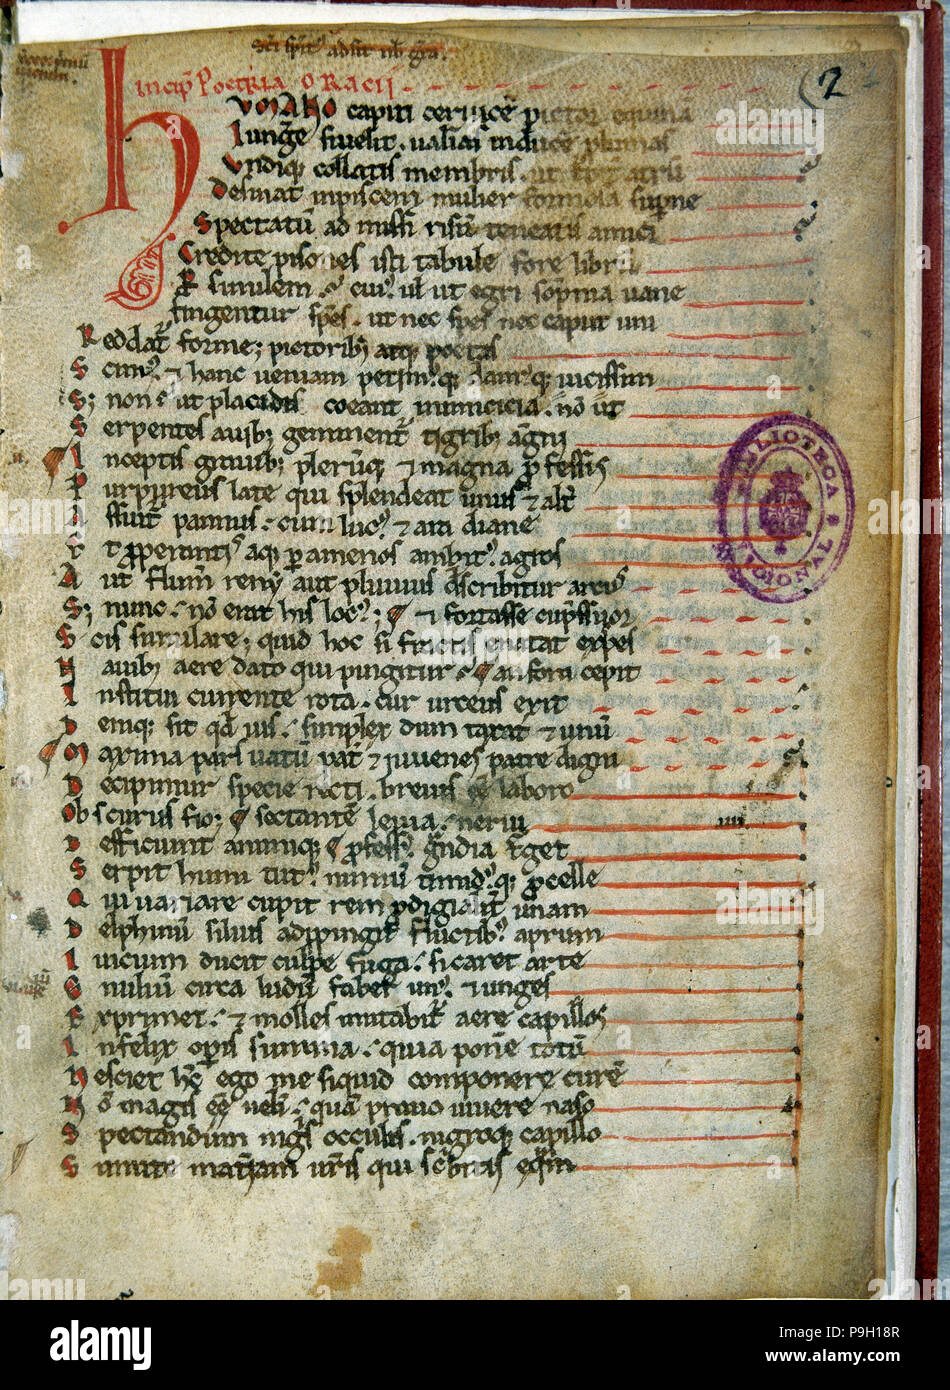 Sci spūs adsit nob gra.
Incip Poetria ORacii
2
hVMAHO capiti cervicē pictor equina
Iungē si velit. varias inducē plumas
Vndiq; collatis membris. ut turpit atrū
Desinat inpiscem mulier formosa supne
Spectatū ad missi risū teneatis amici
Credite pisones isti tabule fore librū
P simulem. cui; ul ut egri sompnia uane
fingentur spēs. ut nec pes nec caput uni
Reddat forme; pictorib; atq; poetis
Scim; & hanc veniam petim;q; dam;q; uicissim
S; non ut placidis coeant inmicicia. nō ut
Serpentes auib; geminent tigrib; agni
Inceptis gravib; plerūq; & magna pfessis
Purpureus late qui splendeat unus & alt
Assuit pannus. cum luc; & ara diane
Et pperantis aq; p amenos ambit; agros
Aut flum reny aut pluvius describitur arcus
S; nunc nō erat his loc; & fortasse cupssum
Scis simulare; quid hoc si fractis enatat expes
Navib; aere dato qui pingitur anfora cepit
Institui currente rota. cur urceus exit
Deniq; sit qd vis. simplex dum taxat & unū
Maxima pars vatū pat & iuvenes patre digni
Decipimur specie recti. brevis eē laboro
Obscurus fio; sectantē levia. nervi
Defficiunt animiq; pfess; grandia turget
Serpit humi tut; nimiū timid;q; pcelle
Qui variare cupit rem pdigialit unam
Delphinū silvis adpingit fluctib; aprum
Iuicium ducit culpe fuga. si caret arte
Emiliū circa ludū faber im; & unges
Exprimet. & molles imitabit aere capillos
Infelix opis summa. quia ponē totū
Nesciet hc ego me siquid componere curē
Nō magis eē velī. quā pravo vivere naso
Spectandum nigis occulis. nigroq; capillo
Sumite matiam uris qui scbitis eqm
BIBLIOTECA NACIONAL
alamy stock photo
P9H18R
www.alamy.com